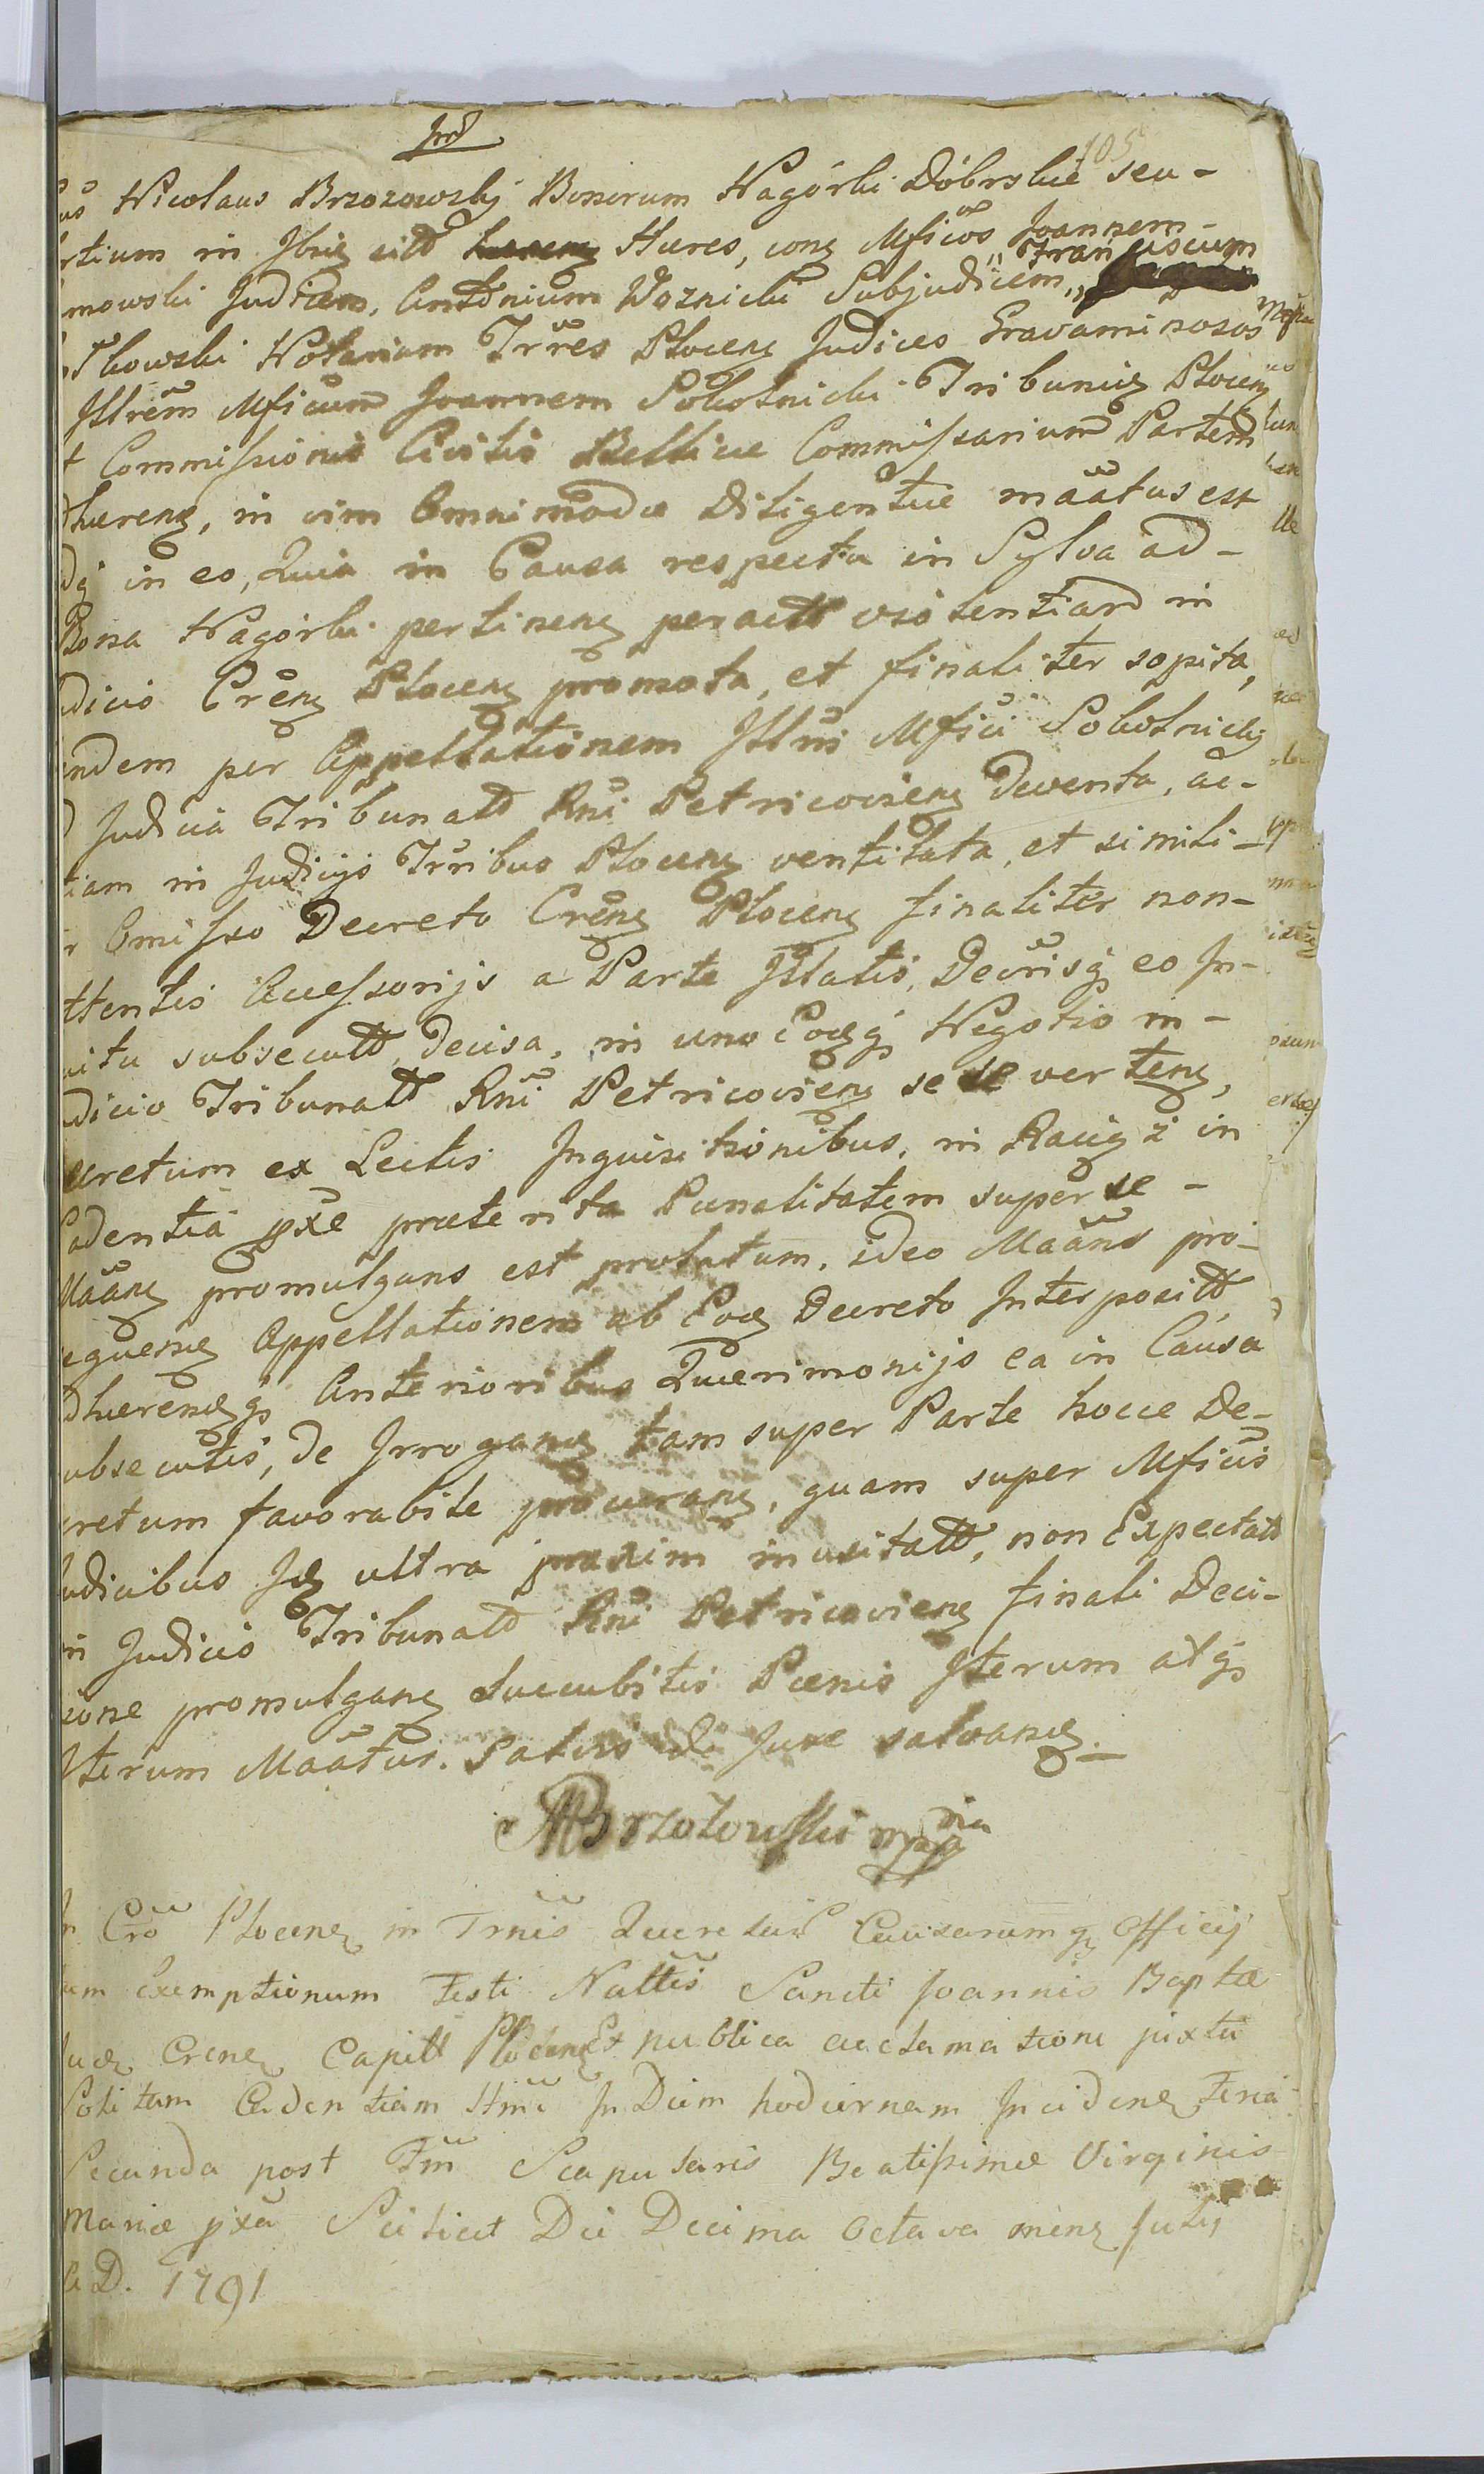 105
Nicolaus Brzozowskj Bonorum Nagórki Dóbrskie seu-
rtium in Jbnę sitt Hæres, cong Mficos Joannem-
mowski Judicem, Antonium Woznicki Subjudicem,, Franciscum
tkowski Notarium Trres Plocenę Judices Gravaminosos
Jllrem Mficum Joannem Sokolnicki Tribunię Plocenę
t Commissionis Civilis Bellicæ Commissarium Partem
dhærenę, in vim Omnimodæ Diligentiæ mãatus est
dq in eo, Quia in Causa respectu in Sylva ad-
Bona Nagórki pertinenę peractt violentiarū in
dicio Crenę Plocenę promota, et finaliter sopita,
andem per Appellationem Jllris Mfici Sokolnickj
d Judicia Tribunalt Rni Petricovienę deventa, ac-
tiam in Judicijs Trribus Plocenę ventilata, et simili-
r Omisso Decreto Crenę Plocenę finaliter non-
ttentis Accessorijs a Parte Jllatis, Decrisq eo In-
uitu subsecutt, decisa, in uno Eoq Negotio in-
dicio Tribunalt Rni Petricovienę sese vertenę,
cretum ex Lectis Inquisitionibus, in Racię z in
Cadentia pxe præterita Punalitatem super se-
Mãanę promulgans est prolatum, ideo Mãans pro-
equenę Appellationem ab Eoę Decreto Interpositt
dhærenęq Anterioribus Quærimonijs ea in Causa
ubsecutis, de Irroganę tam super Parte hocce De-
cretum favorabile procuranę, quam super Mficis
udicibus Jd ultra praxim inusitatt, non Expectatt
in Judicio Tribunalt Rni Petricovienę finali Deci-
sione promulganę Succubitis Pænis Iterum atq
Iterum Mãatus. Salvis de Jure salvanę.-
MBrzozowski mppria
n Cro Plocenę in Trnis Querelar Causarumq Officij
um Exemptionum Festi Nattis Sancti Joannis Baptæ
Crenę Capitt Plocenę Ex publica acclamatione juxta
Solitam Cadentiam Hmi In Diem hodiernam Incidenę Feria
Secunda post Fm Scapularis Beatissimæ Virginis
Mariæ pxa Scilicet Die Decima Octava menę Julij
A D. 1791